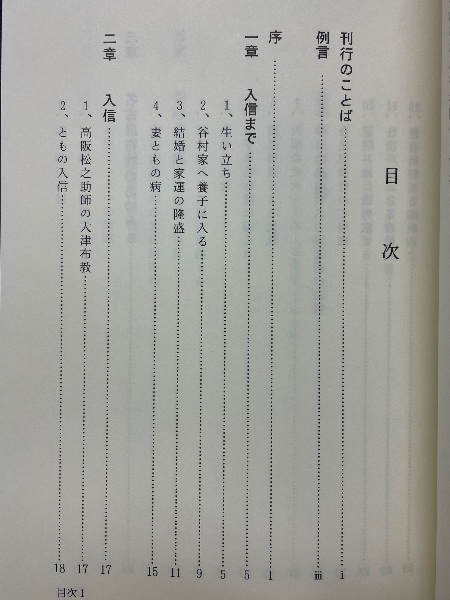 目次
刊行のことば……………………i
例言……………………iii
序……………………1
一章　入信まで……………………5
1、生い立ち……………………5
2、谷村家へ養子に入る……………………9
3、結婚と家運の隆盛……………………11
4、妻ともの病……………………15
二章　入信……………………17
1、高阪松之助師の大津布教……………………17
2、ともの入信……………………18
目次 1